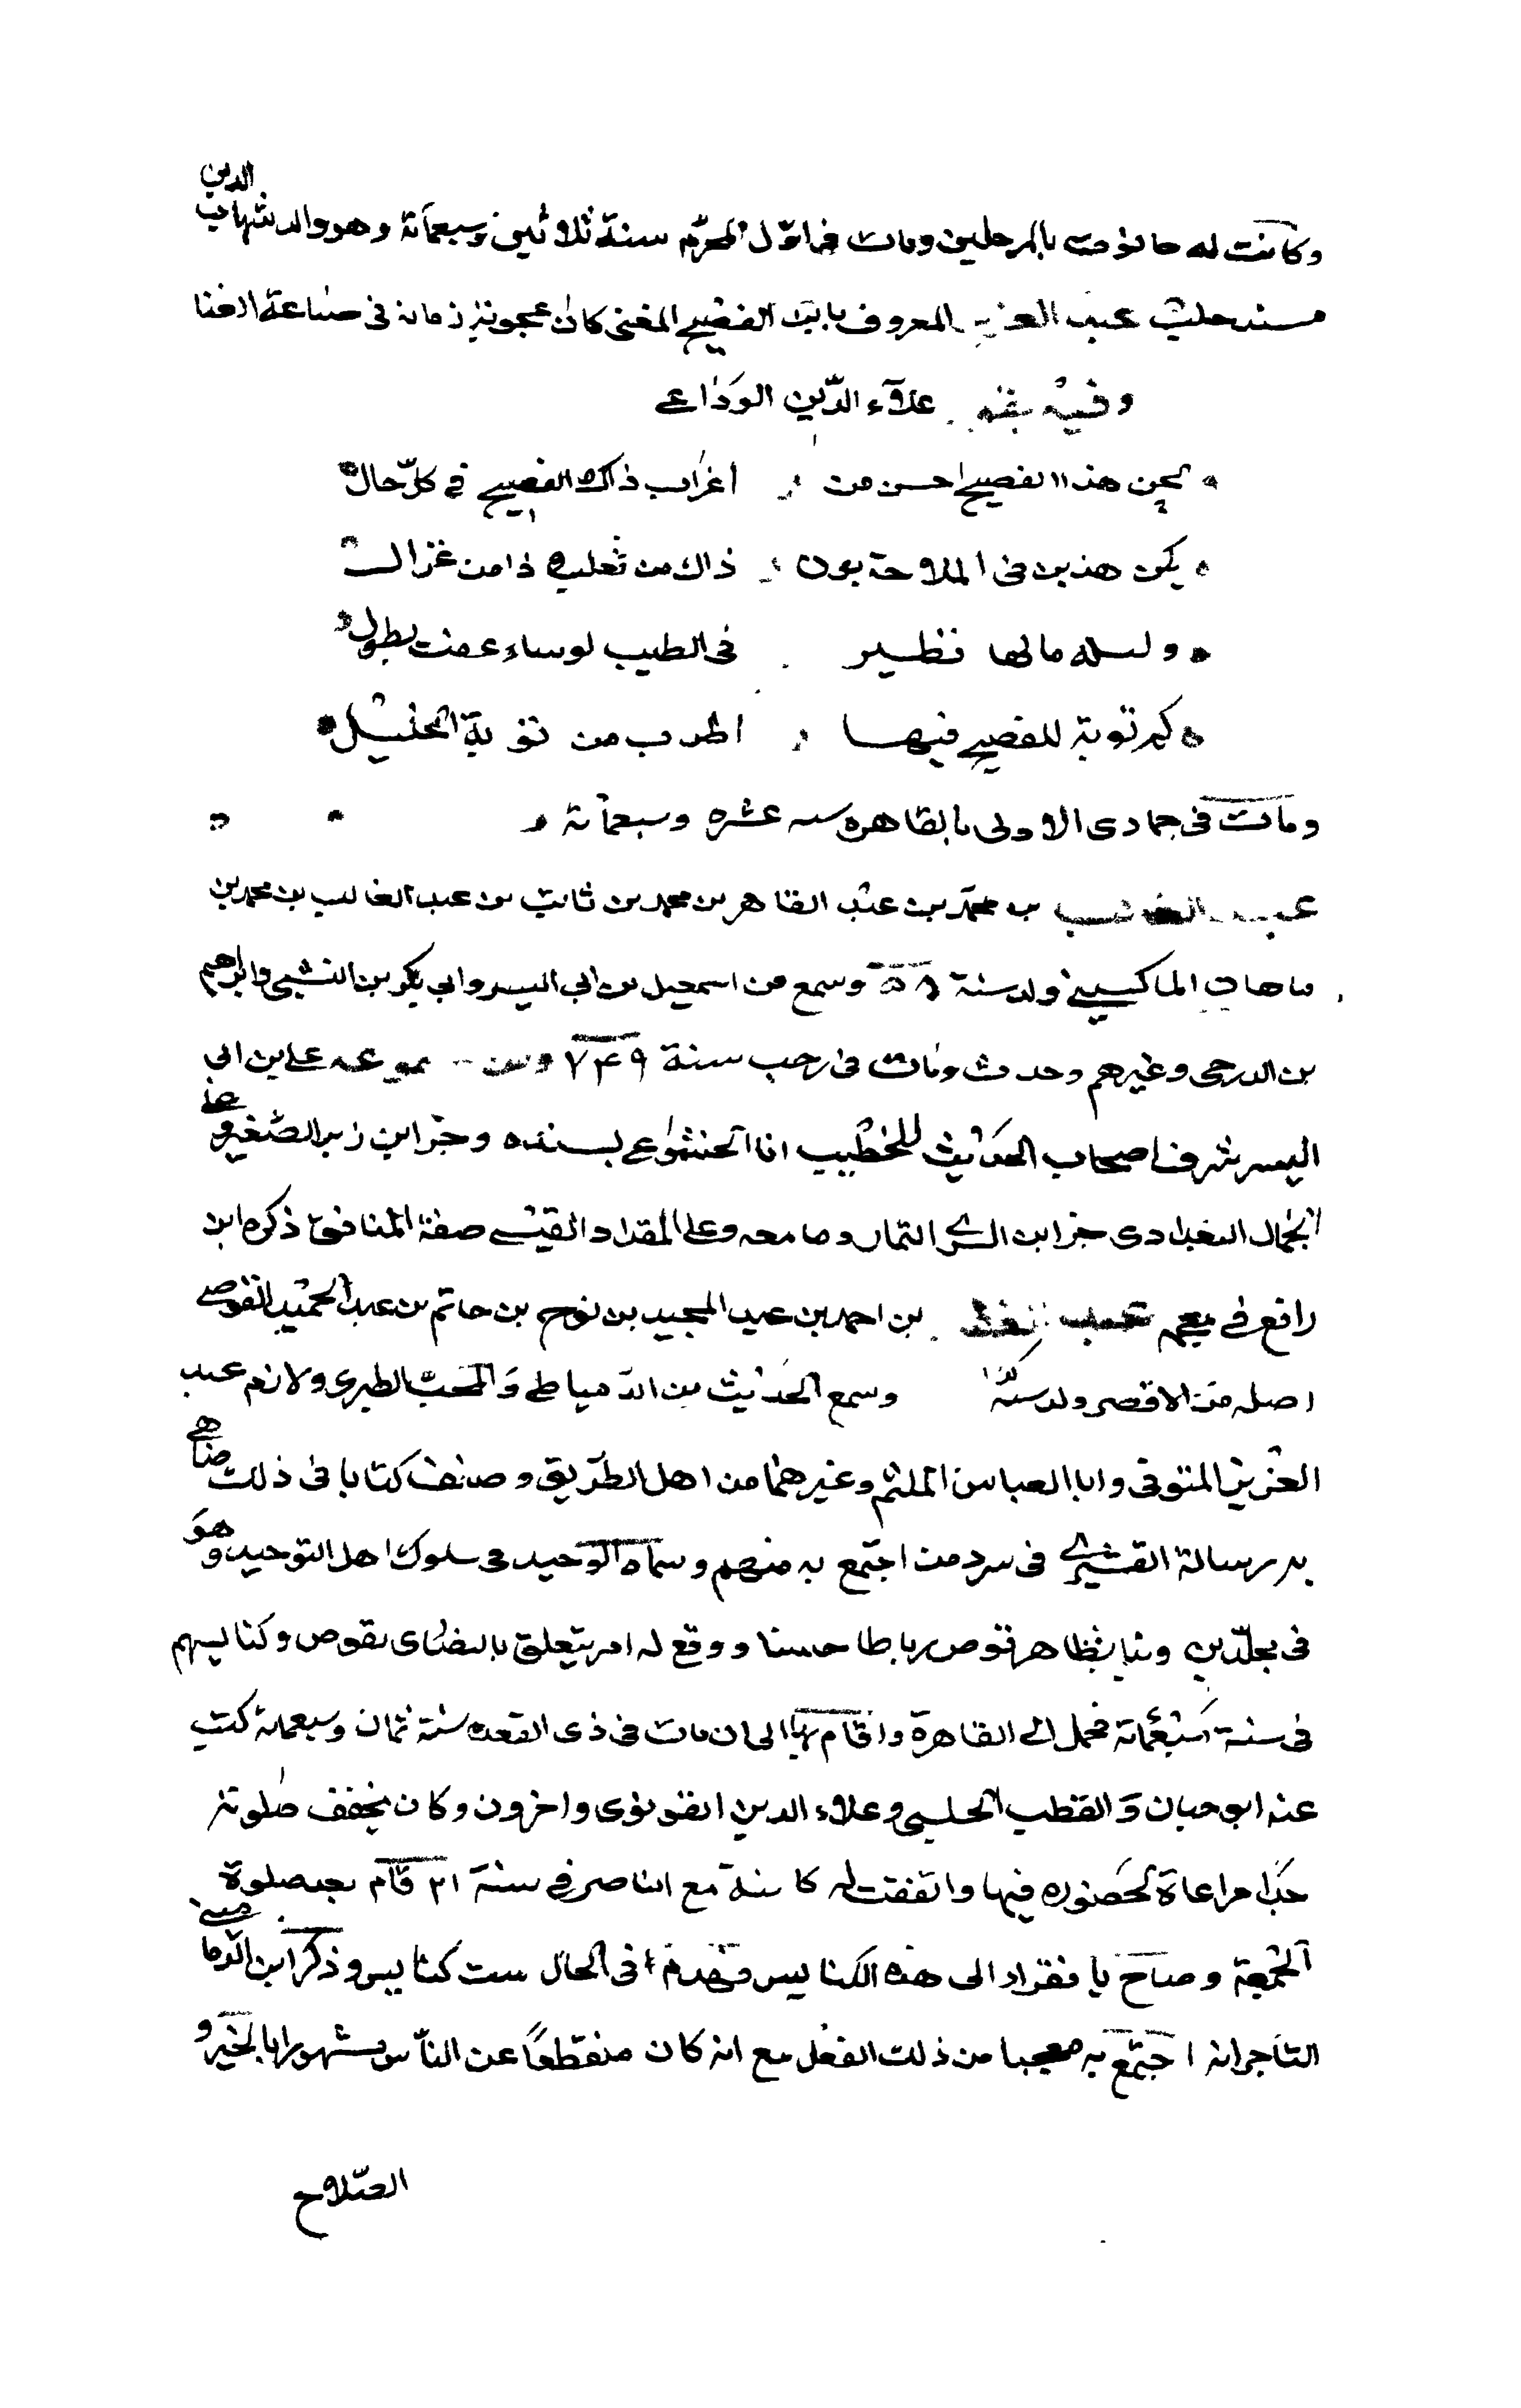 وكانت له حانوت بالمرحلين ومات في اول المحرم سنة ثلاثين وسبعمائة وهو والد شهاب الدين
مسند حلب عبد العزيز المعروف بابن الفصيح المغنى كان اعجوبة زمانه فى صناعة الغنا
وفيه يقول علاء الدين الوداعى
لحن هذا الفصيح احسن من اغراب ذاك الفصيح في كل حال
يكن هذين فى الملاحة بون ذاك من ثعلب ذا من غزال
وليلة مالها نظير فى الطيب لو ساعفت بطول
كم نوبة للفصيح فيها اطرب من نوبة الخليل
ومات فى جمادى الاولى بالقاهرة سنه عشره وسبعمائة
عبد الغالب بن محمد بن عبد القاهر بن محمد بن ثابت بن عبد الغالب بن محمد بن
ماهان الماكسينى ولد سنة ٥٨ وسمع من اسمعيل بن ابى اليسر وابى بكر بن النشبى وابراهيم
بن الدرجى وغيرهم وحدث ومات فى رجب سنة ٧٤٩ ومن عه على بن ابى
اليسر شرف اصحاب الحديث للخطيب انا الخشوعى بسنده وجزابن زبر الصغير وعلى
الجمال البغدادى جزابن السرى التمار وما معه وعلى المقداد القيسى صفة المنافق ذكره ابن
رافع فى معجمه عبد الغفار بن احمد بن عبد المجيد بن نوح بن حاتم بن عبد الحميد القوصى
اصله من الاقصر ولد سنة وسمع الحديث من الدمياطى والمحب الطبرى ولازم عبد
العزيز المنوفى وابا العباس الملثم وغيرهما من اهل الطريق وصنف كتابا فى ذلك ضاهى
به رسالة القشيرى فى سرد من اجتمع به منهم وسماه الوحيد فى سلوك اهل التوحيد وهو
فى مجلدين وبنا بظاهر قوص رباطا حسنا ووقع له امر يتعلق بالنصارى بقوص وكنايسهم
فى سنة سبعمائة فحمل الى القاهرة واقام بها الى ان مات فى ذى القعده سنة ثمان وسبعمائة كتب
عنه ابو حيان والقطب الحلبى وعلاء الدين القونوى واخرون وكان يخفف صلوته
جدا مراعاة لحضوره فيها واتفقت له كاينة مع الناصر فى سنة ٢١ قام بعد صلوة
الجمعة وصاح يا فقراء الى هذه الكنايس فهدم فى الحال ست كنايس وذكر ابن الدماميني
التاجر انه اجتمع به معجبا من ذلك الفعل مع انه كان منقطعا عن الناس مشهورا بالخير و
الصلاح